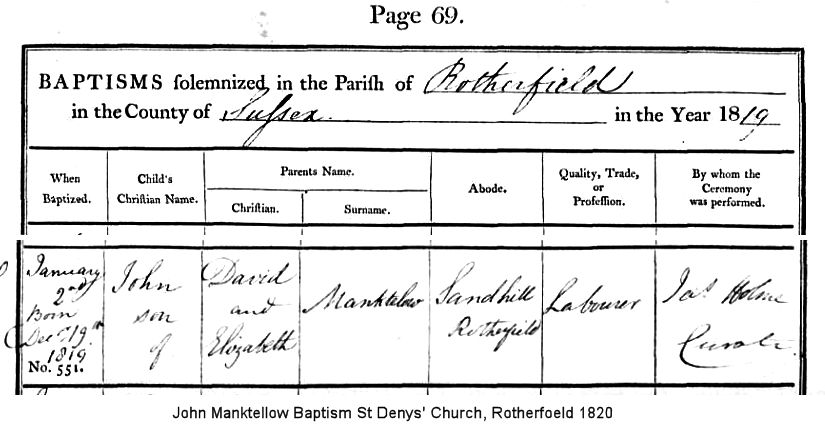 Page 69.
BAPTISMS ſolemnized in the Pariſh of Rotherfield
in the County of Suſsex in the Year 1819
When
Baptized.
Child's
Chriſtian Name.
Parents Name.
Chriſtian.
Surname.
Abode.
Quality, Trade,
or
Profeſſion.
By whom the
Ceremony
was performed.
January
2nd
Born
Decr 19th
1819
No. 551.
John
son
of
David
and
Elizabeth
Manktelow
Sandhill
Rotherfield
Labourer
Jas Holme
Curate
John Manktellow Baptism St Denys' Church, Rotherfoeld 1820